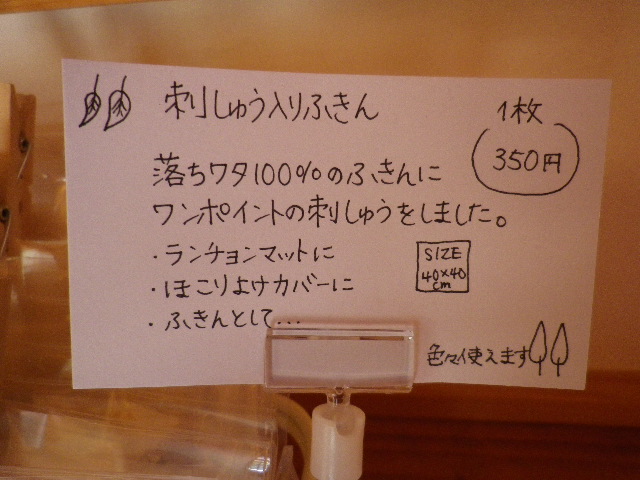 刺しゅう入りふきん
1枚
350円
落ちワタ100%のふきんに
ワンポイントの刺しゅうをしました。
・ランチョンマットに
・ほこりよけカバーに
・ふきんとして...
SIZE
40×40
cm
色々使えます